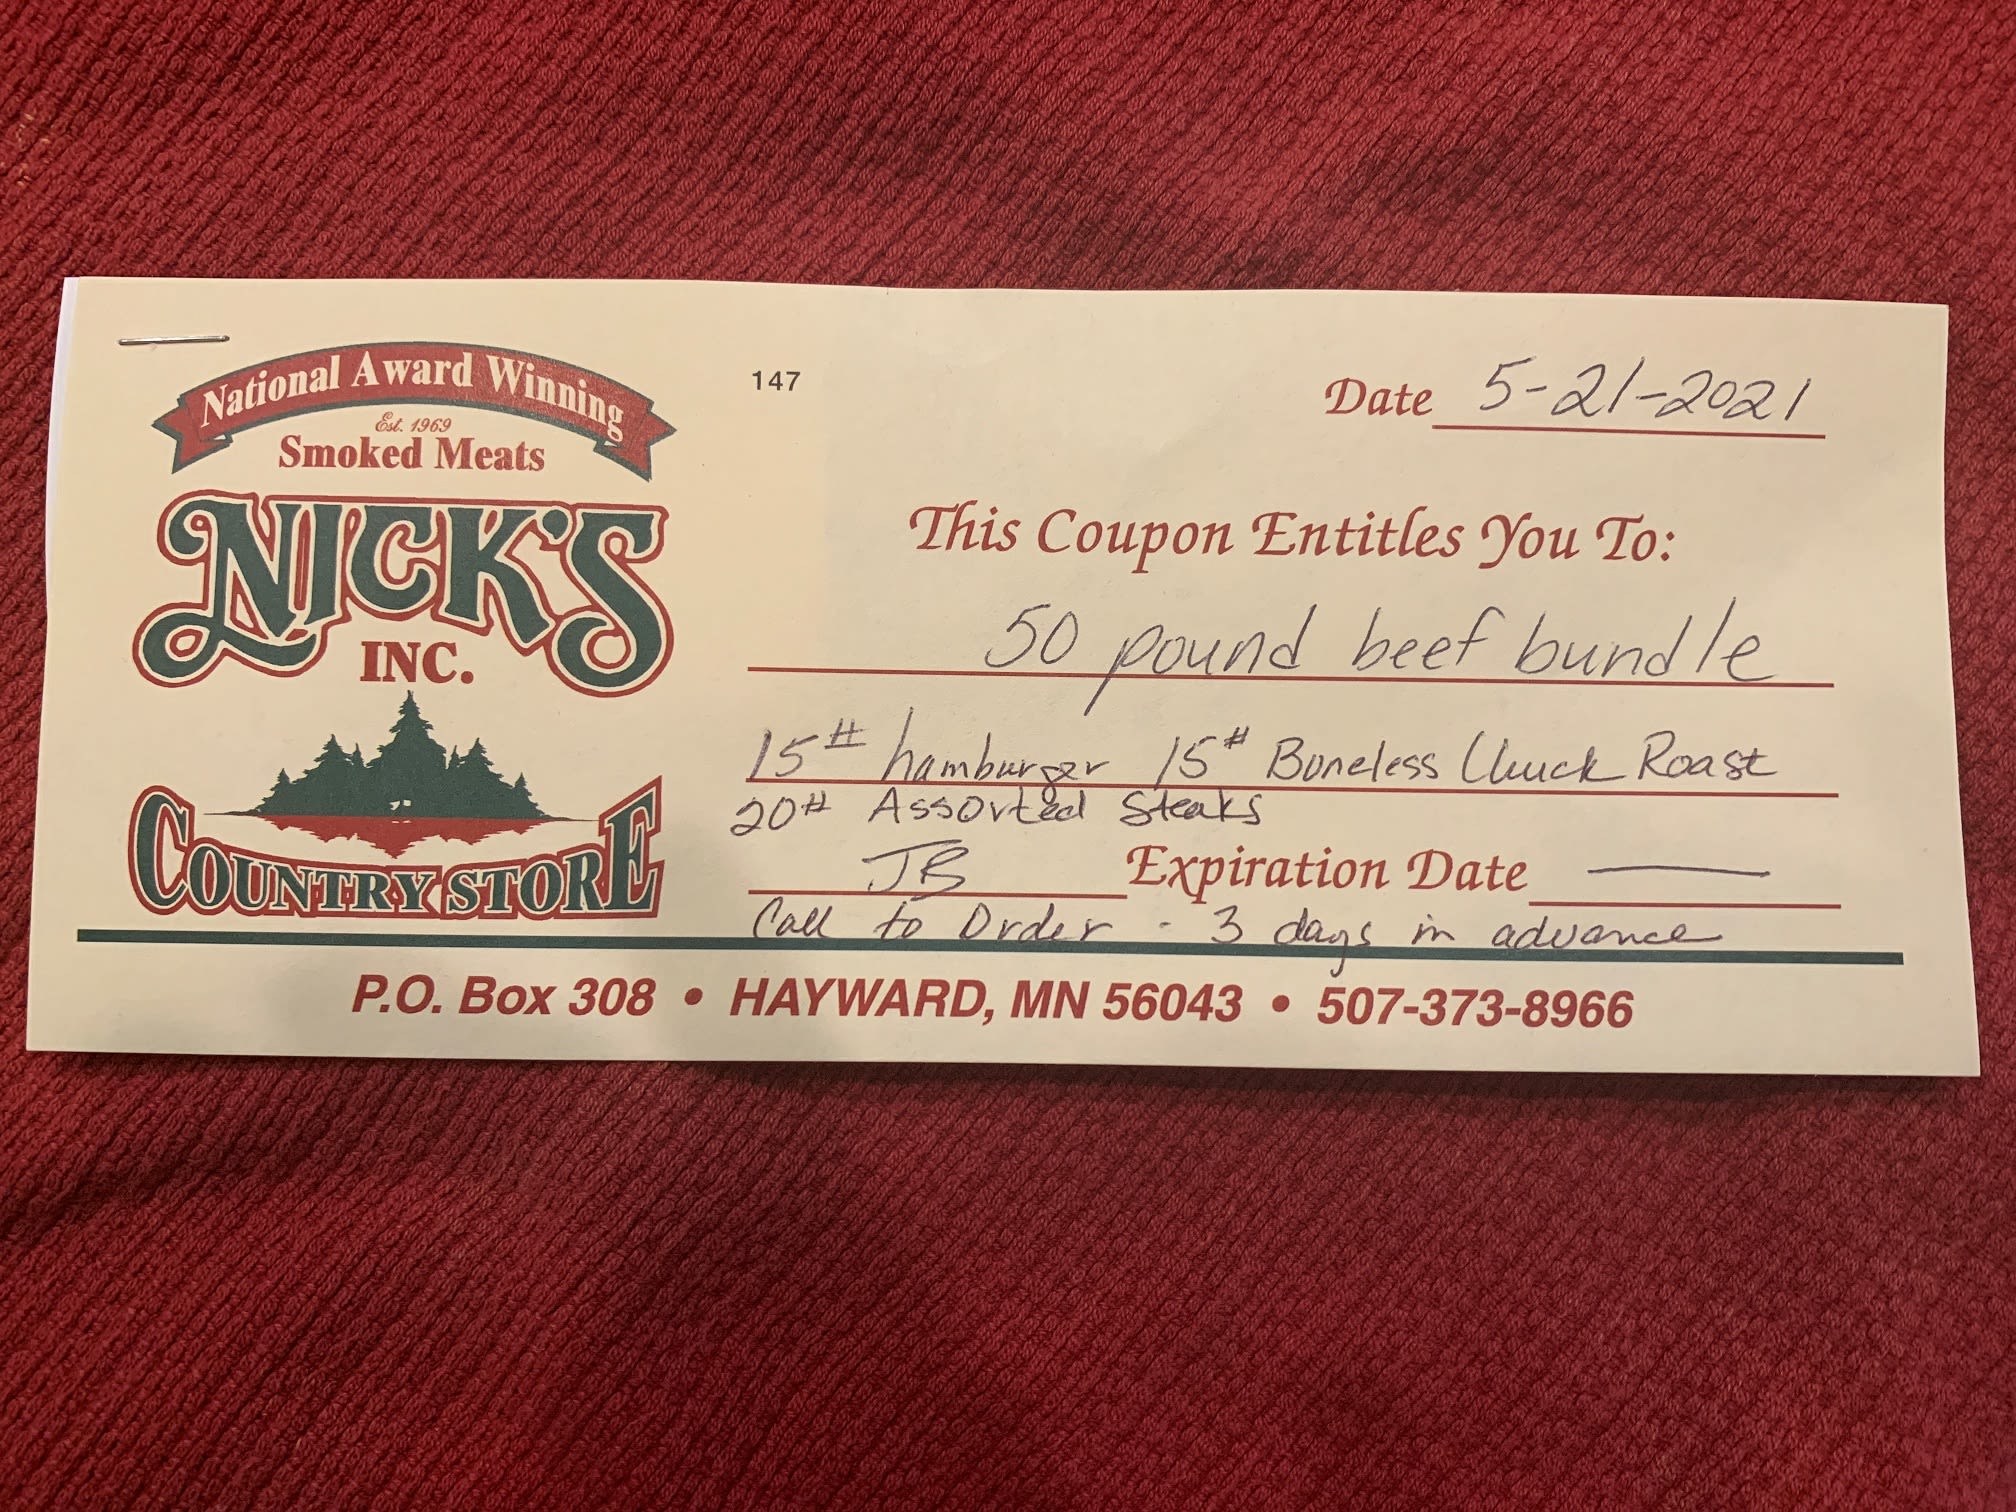 National Award Winning
Est. 1969
Smoked Meats
NICK'S
INC.
COUNTRY STORE
147
Date 5-21-2021
This Coupon Entitles You To:
50 pound beef bundle
15# hamburger 15# Boneless Chuck Roast
20# Assorted Steaks
JB Expiration Date —
Call to Order - 3 days in advance
P.O. Box 308 • HAYWARD, MN 56043 • 507-373-8966